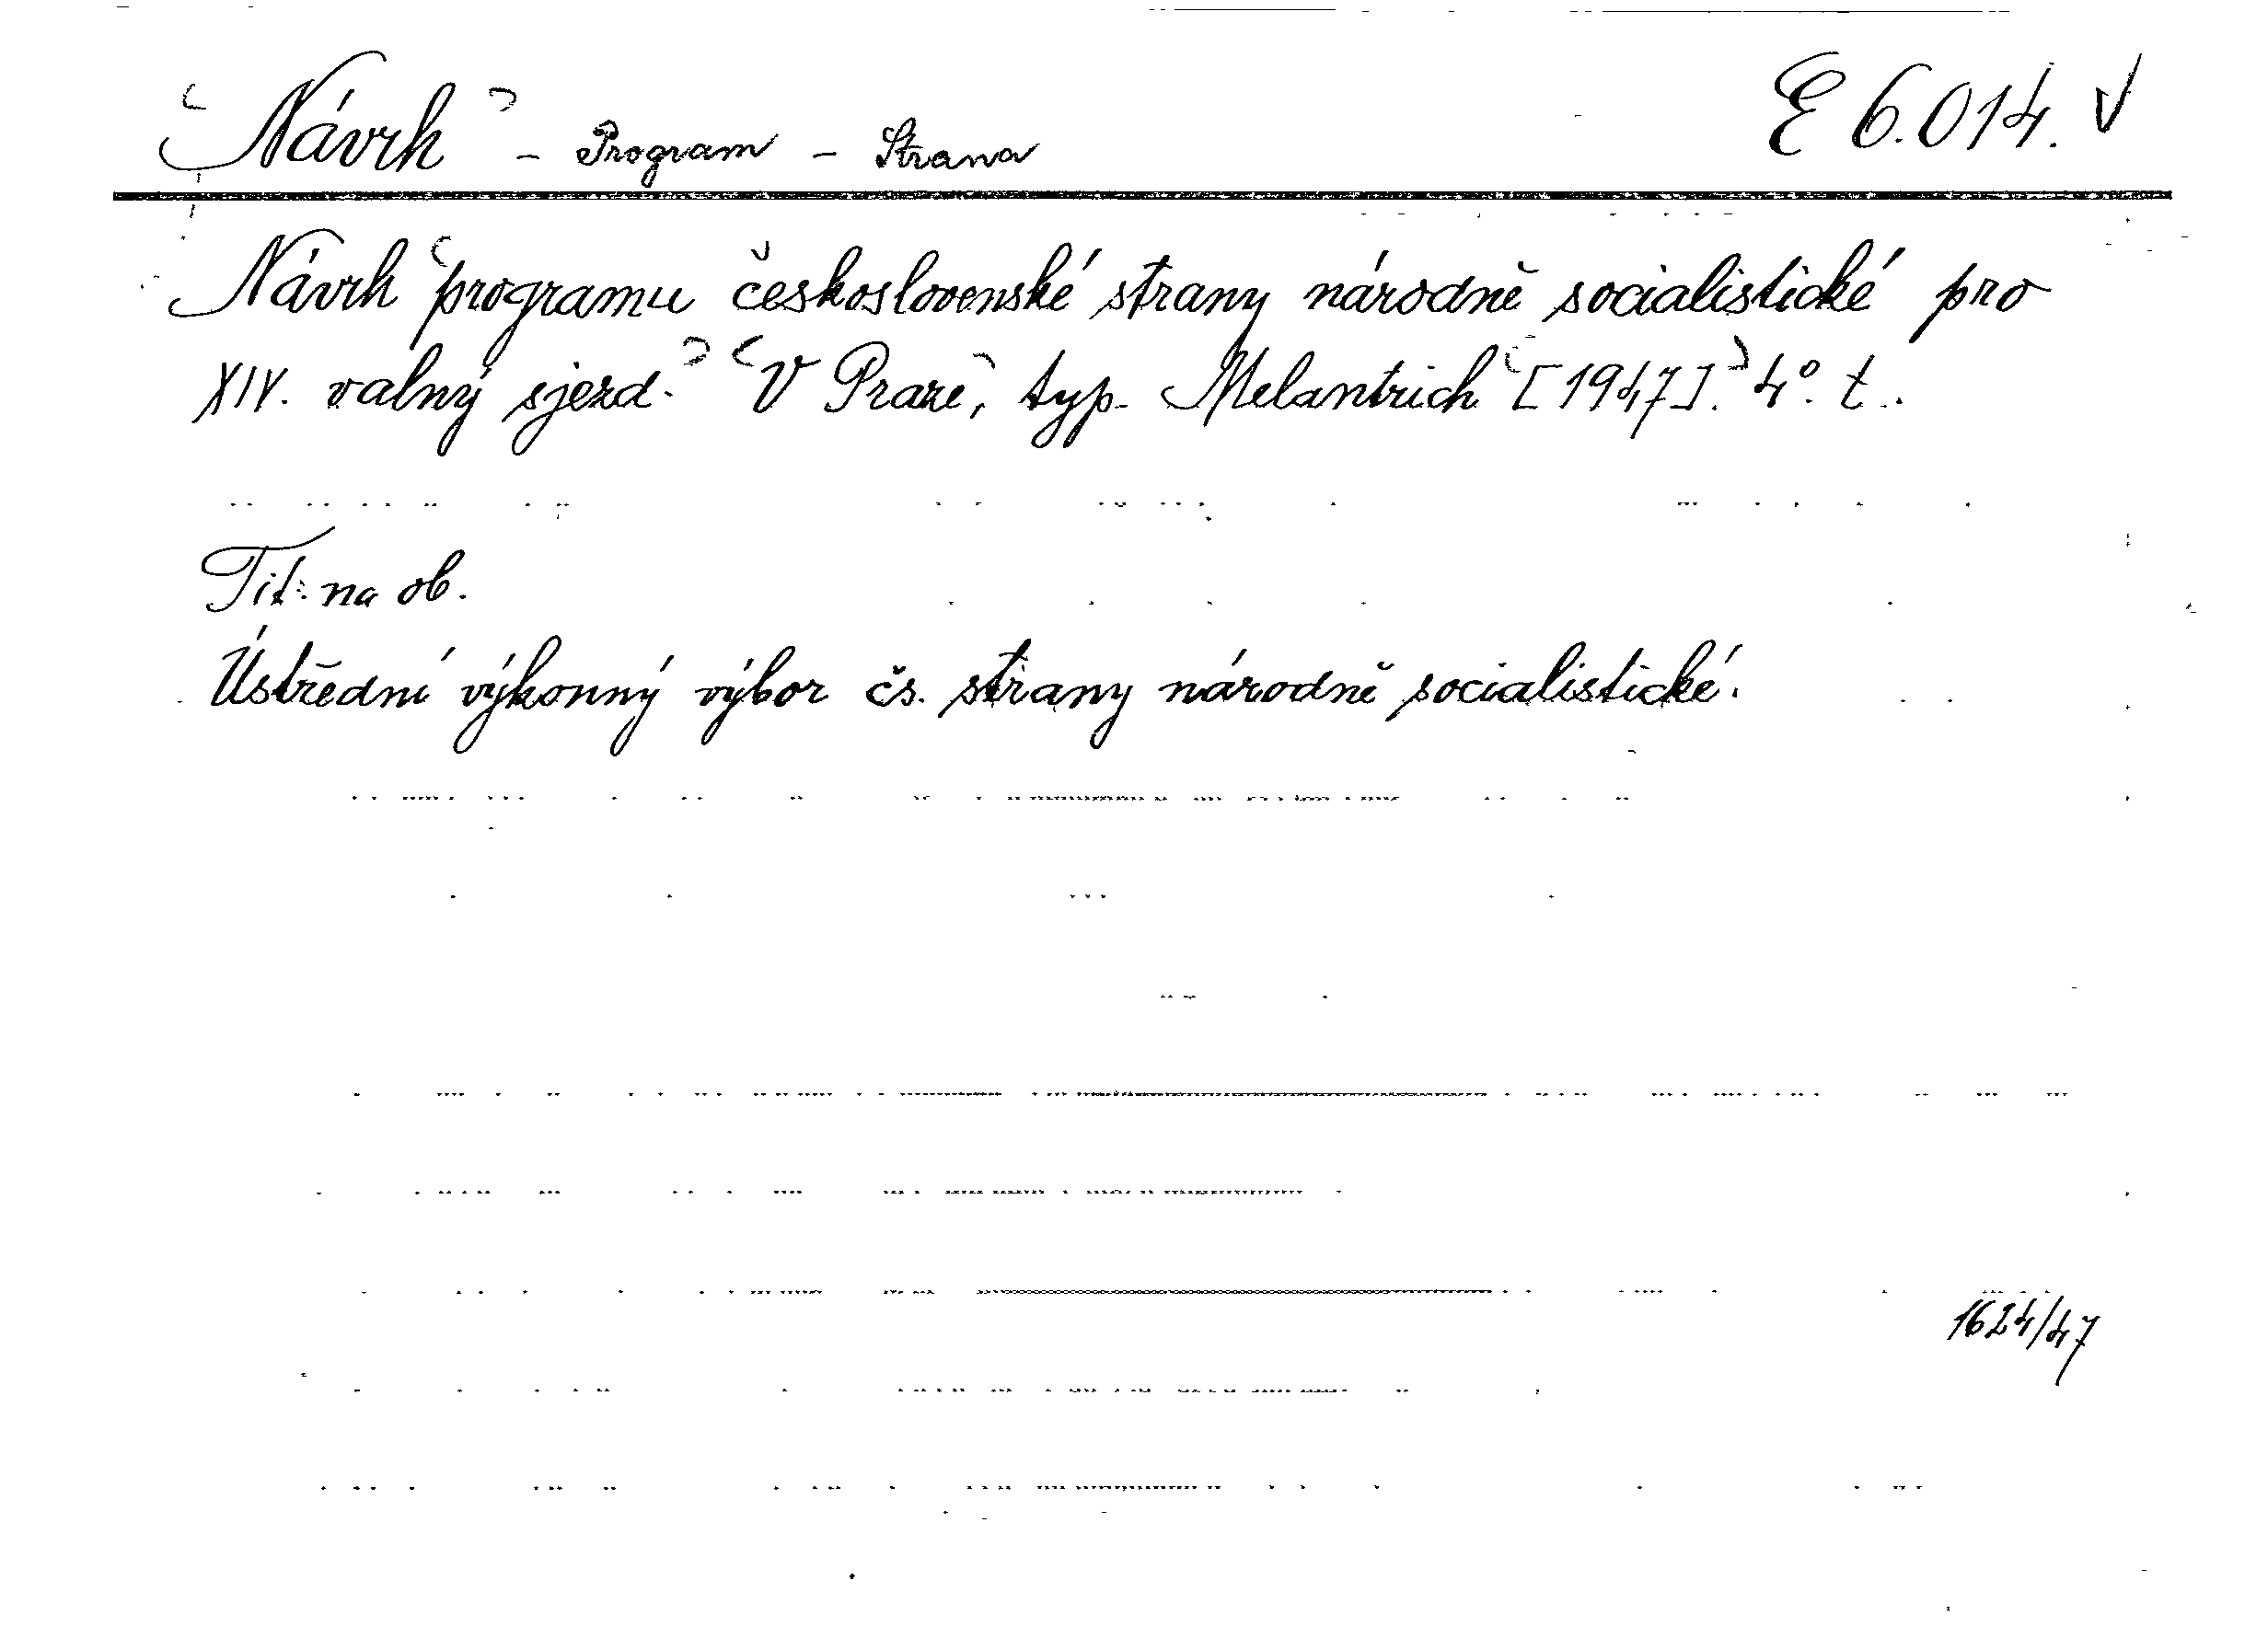 Návrh - Program - Strana E 6.014. V
Návrh programu československé strany národně socialistické pro
XIV. valný sjezd. V Praze, typ. Melantrich [1947]. 4°. t..
Tit. na ob.
Ústřední výkonný výbor čs. strany národně socialistické.
1624/47